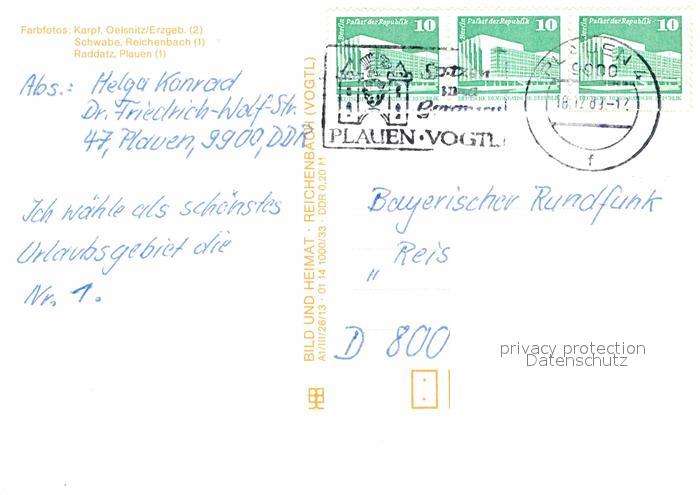 Farbfotos: Karpf, Oelsnitz/Erzgeb. (2)
Schwabe, Reichenbach (1)
Raddatz, Plauen (1)
Abs.: Helga Konrad
Dr. Friedrich-Wolf-Str.
47, Plauen, 9900, DDR
Ich wähle als schönstes
Urlaubsgebiet die
Nr. 1.
BILD UND HEIMAT · REICHENBACH (VOGTL)
A1/III/26/13 · 01 14 1000/33 · DDR 0,20 M
Berlin Palast der Republik 10
Berlin Palast der Republik 10
Berlin Palast der Republik 10
Spitzen
PLAUEN · VOGTL
PLAUEN
9900
f
Bayerischer Rundfunk
„ Reis
D 800
privacy protection
Datenschutz